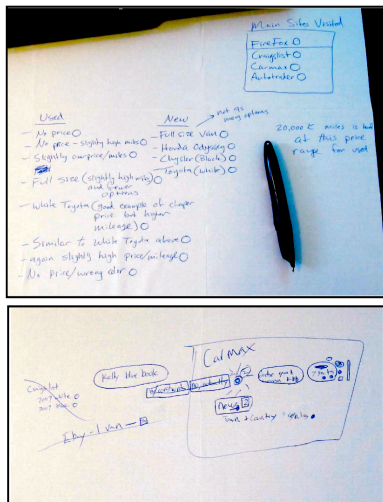 Main Sites Visited
FireFox
Craigslist
Carmax
Autotrader
Used
- No price
- No price - slightly high miles
- Slightly overprice/miles
- Full size (slightly high miles)
and fewer
options
- White Toyota (good example of cheaper
price but higher
mileage)
- Similar to White Toyota above
- again slightly high price/mileage
- No price/wrong color
New
not as
many options
- Full size van
- Honda Odyssey
- Chrysler (Black)
- Toyota (white)
20,000 miles is
at this price
range for used
Carmax
Kelly blue book
Craigslist
2007
2007
Ebay - 1 van -
News
Town + Country